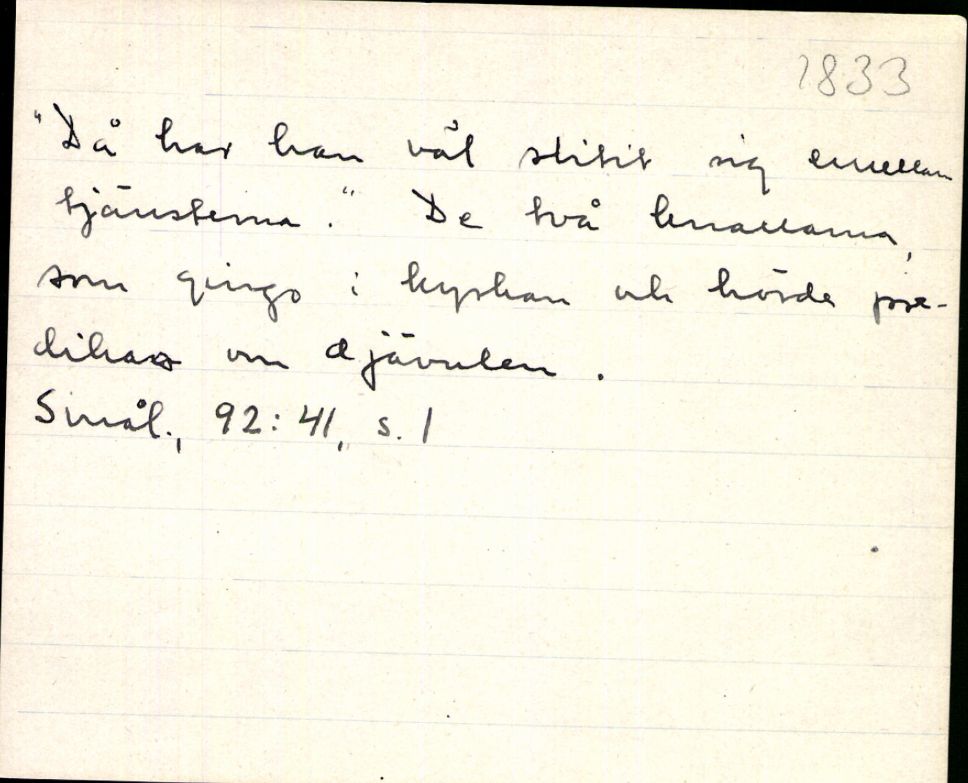 1833
"Då har han väl slitit sig emellan
tjänsterna." De två knallarna,
som gingo i kyrkan och hörde pre-
dikas om djävulen.
Smål., 92:41, s. 1